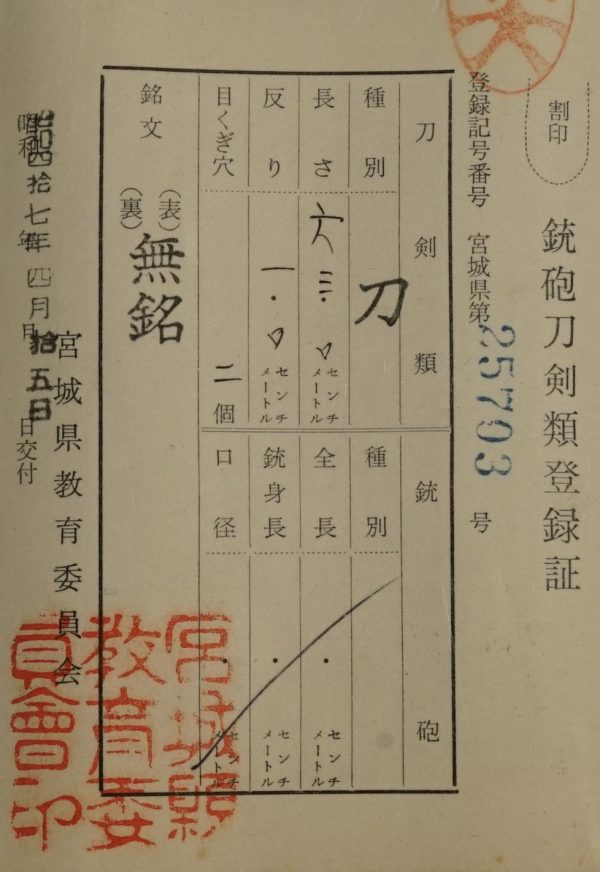 割印
銃砲刀剣類登録証
登録記号番号 宮城県第25703号
刀剣類
種別 刀
長さ 六三・ センチメートル
反り 一・ センチメートル
目くぎ穴 二個
銘文 (表)(裏) 無銘
銃砲
種別
全長 ・ センチメートル
銃身長 ・ センチメートル
口径 ・ センチメートル
昭和四拾七年四月拾五日交付
宮城県教育委員会
宮城縣
教育委
員會印